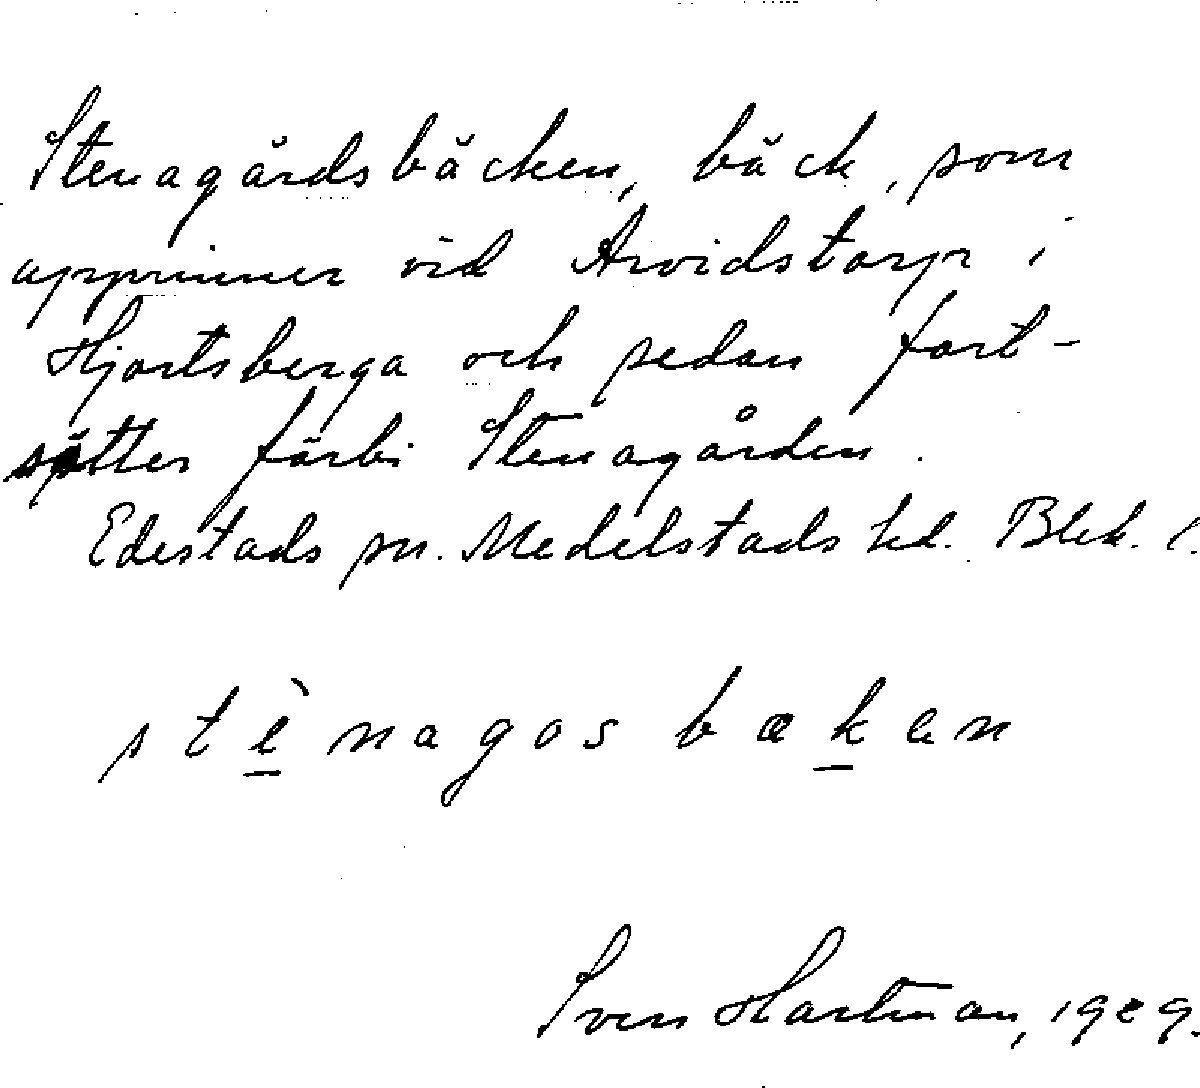 Stenagårdsbäcken, bäck, som
upprinner vid Arvidstorp i
Hjortsberga och sedan fort-
sätter förbi Stenagården.
Edestads sn. Medelstads hd. Blek. l.
stènagos bækan
Sven Hartman, 1929.